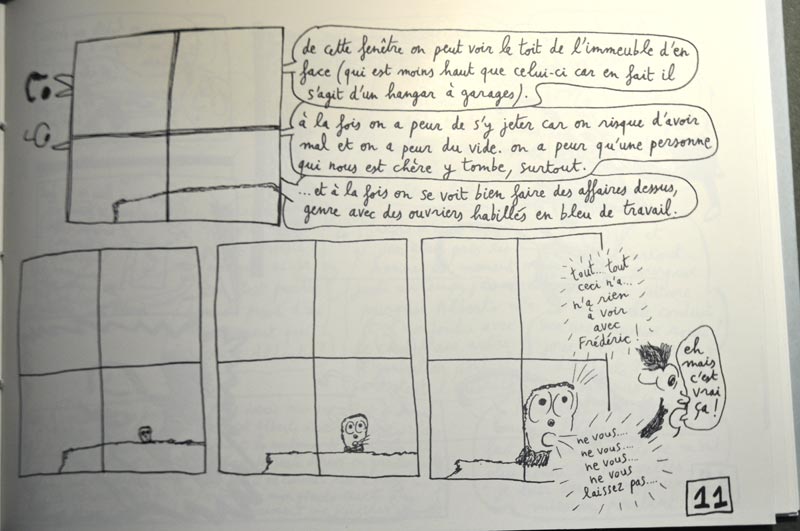 de cette fenêtre on peut voir le toit de l'immeuble d'en
face (qui est moins haut que celui-ci car en fait il
s'agit d'un hangar à garages).
à la fois on a peur de s'y jeter car on risque d'avoir
mal et on a peur du vide. on a peur qu'une personne
qui nous est chère y tombe, surtout.
...et à la fois on se voit bien faire des affaires dessus,
genre avec des ouvriers habillés en bleu de travail.
tout... tout
ceci n'a...
n'a rien
à voir
avec
Frédéric !
eh
mais
c'est
vrai
ça !
ne vous....
ne vous....
ne vous....
ne vous
laissez pas....
11